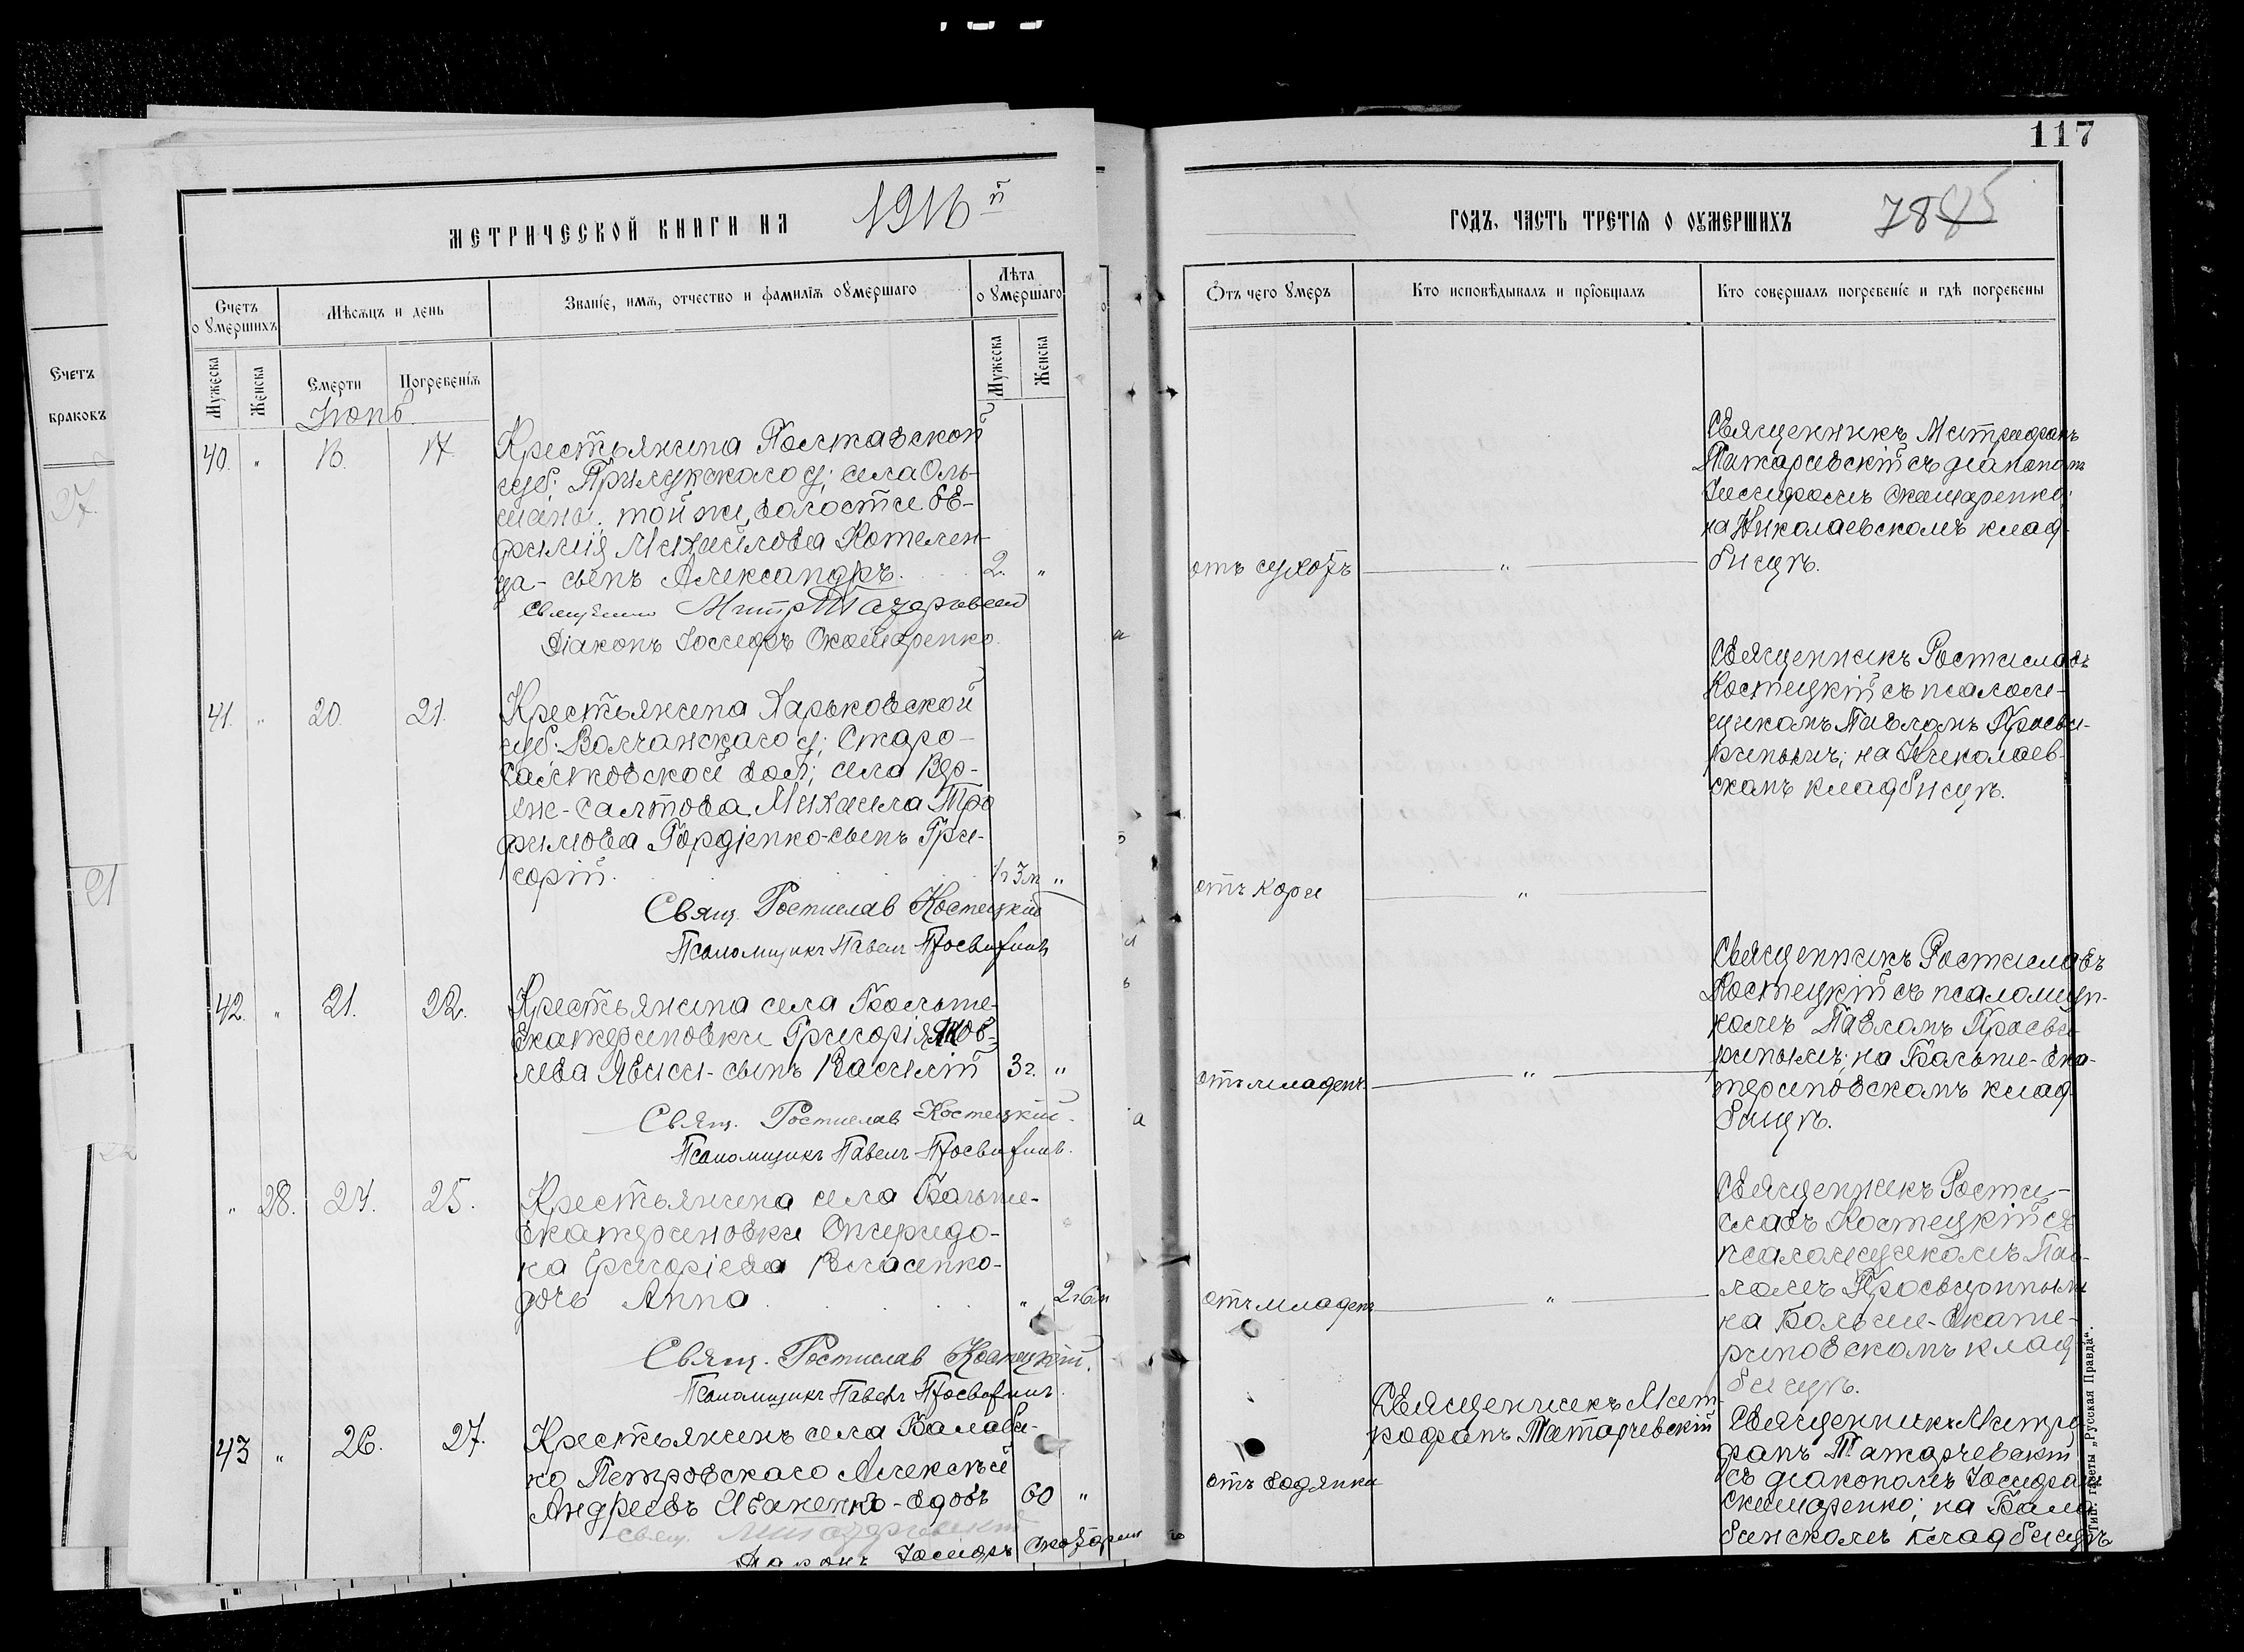 117
МЕТРИЧЕСКОЙ КНИГИ НА 1916 й
ГОДЪ, ЧАСТЬ ТРЕТІЯ О ОУМЕРШИХЪ 7845
Счетъ оумершихъ
Мѣсяцъ и день
Званіе, имя, отчество и фамилія оумершаго
Лѣта оумершаго
Мужеска
Женска
Смерти
Погребенія
Мужеска
Женска
Отъ чего умеръ
Кто исповѣдывалъ и пріобщалъ
Кто совершалъ погребеніе и гдѣ погребены
Счетъ
браковъ
Іюнь
40. " 16. 17.
Крестьянина Полтавской
губ. Прилукскаго у; села Оль-
шаны той же волости Ев-
фимія Михайлова Котелен-
ца - сынъ Александръ. 2. "
Діаконъ Іосифъ Скамаренко.
отъ сухотъ
"
Священникъ Митрофанъ
Татарчевскій съ діакономъ
Іосифомъ Скамаренко;
на Николаевскомъ клад-
бищѣ.
41. " 20. 21.
Крестьянина Харьковской
губ. Волчанскаго у; Старо-
салтовской вол; села Вер-
хне-Салтова Михаила Тро
фимова Гордіенко-сынъ Гри-
горій.
отъ кори
"
Свящ. Ростислав Костецкій
Псаломщикъ Павелъ Просвиринъ
Священникъ Ростиславъ
Костецкій съ псалом-
щикомъ Павломъ Просви-
ринымъ; на Николаев-
скомъ кладбищѣ.
42. " 21. 22.
Крестьянина села Больше-
Екатериновки Григорія Яков-
лева Явиси - сынъ Василій 3 г. "
отъ младенч
"
Свящ. Ростислав Костецкій.
Псаломщикъ Павелъ Просвиринъ.
Священникъ Ростиславъ
Костецкій съ псаломщи-
комъ Павломъ Просви-
ринымъ; на Больше-Ека-
териновскомъ клад-
бищѣ.
" 28. 24. 25.
Крестьянина села Больше-
Екатериновки Спиридо-
на Григоріева Власенко-
дочь Анна " 2 г 6 м
отъ младенч
"
Свящ. Ростислав Костецкій.
Псаломщикъ Павелъ Просвиринъ.
Священникъ Рости-
славъ Костецкій съ
псаломщикомъ Пав-
ломъ Просвиринымъ
на Больше-Екате-
риновскомъ клад
бищѣ.
43 " 26. 27.
Крестьянинъ села Балаби-
но Петровскаго Алексѣй
Андреевъ Иваненко - вдовъ 60 "
отъ водянки
Священникъ Мит
рофанъ Татарчевскій
Священникъ Митро
фанъ Татарчевскій
съ діакономъ Іосифомъ
Скамаренко; на Бала
бинскомъ кладбищѣ
Тип. газеты „Русская Правда“.